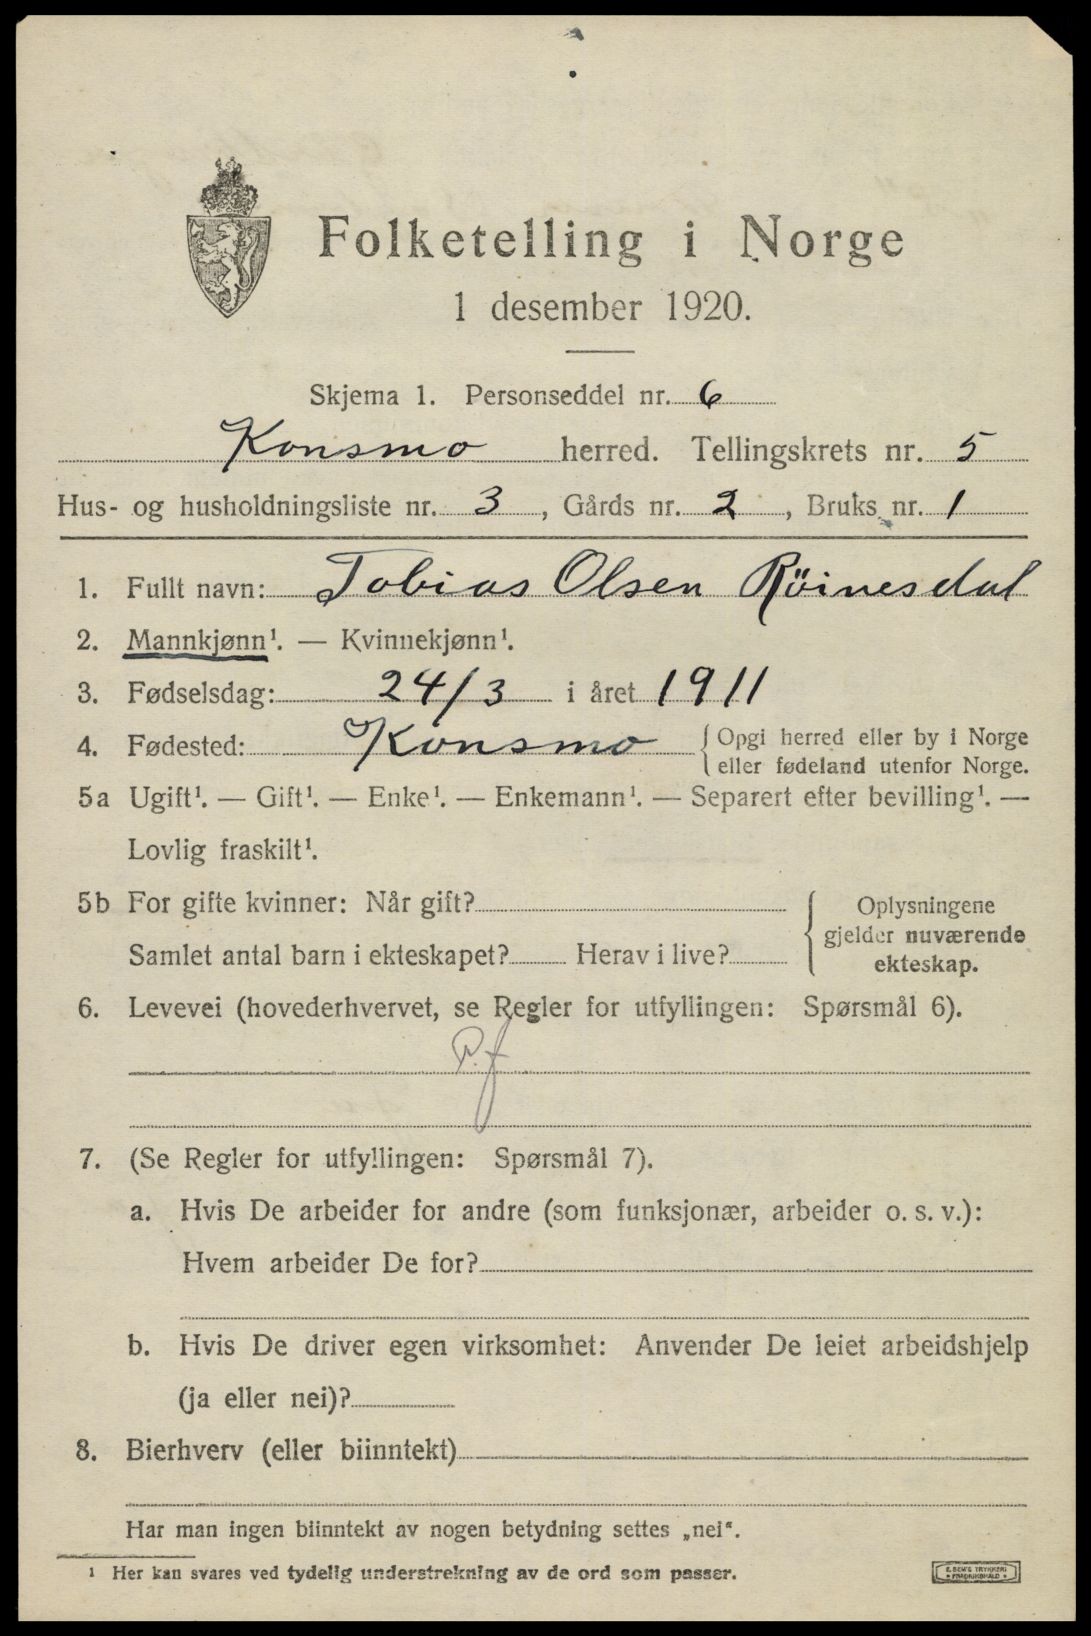 Folketelling i Norge
1 desember 1920.
Skjema 1. Personseddel nr. 6
Konsmo herred. Tellingskrets nr. 5
Hus- og husholdningsliste nr. 3, Gårds nr. 2, Bruks nr. 1
1. Fullt navn: Tobias Olsen Röinesdal
2. Mannkjønn¹. — Kvinnekjønn¹.
3. Fødselsdag: 24/3 i året 1911
4. Fødested: Konsmo { Opgi herred eller by i Norge
eller fødeland utenfor Norge.
5a Ugift¹. — Gift¹. — Enke¹. — Enkemann¹. — Separert efter bevilling¹. —
Lovlig fraskilt¹.
5b For gifte kvinner: Når gift?
Samlet antal barn i ekteskapet? Herav i live?
{ Oplysningene
gjelder nuværende
ekteskap.
6. Levevei (hovederhvervet, se Regler for utfyllingen: Spørsmål 6).
P.f
7. (Se Regler for utfyllingen: Spørsmål 7).
a. Hvis De arbeider for andre (som funksjonær, arbeider o. s. v.):
Hvem arbeider De for?
b. Hvis De driver egen virksomhet: Anvender De leiet arbeidshjelp
(ja eller nei)?
8. Bierhverv (eller biinntekt)
Har man ingen biinntekt av nogen betydning settes „nei“.
¹ Her kan svares ved tydelig understrekning av de ord som passer.
E. SEM'S TRYKKERI
FREDRIKSHALD